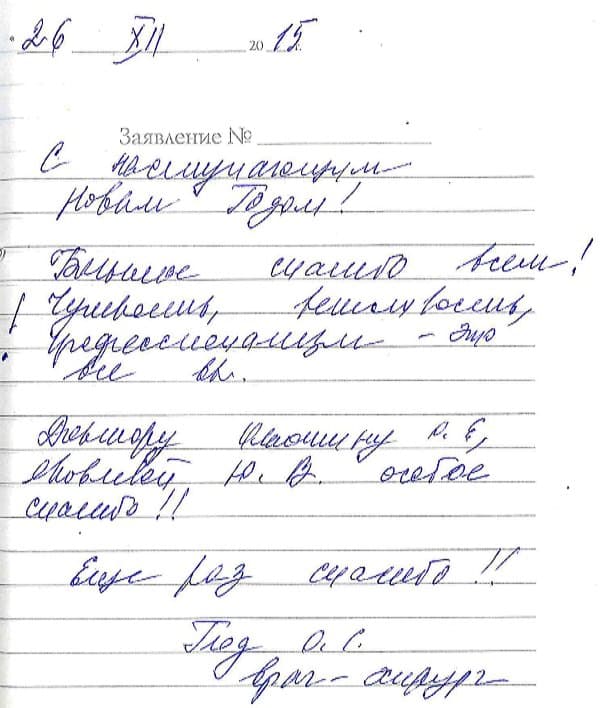 26 XII 2015
Заявление №
С наступающим
Новым Годом!
Большое спасибо всем!
Чуткость, вежливость,
профессионализм - это
все вы.
Доктору О. Е.,
Яковлевой Ю. В. особое
спасибо!!
Еще раз спасибо!!
О. С.
врач-хирург